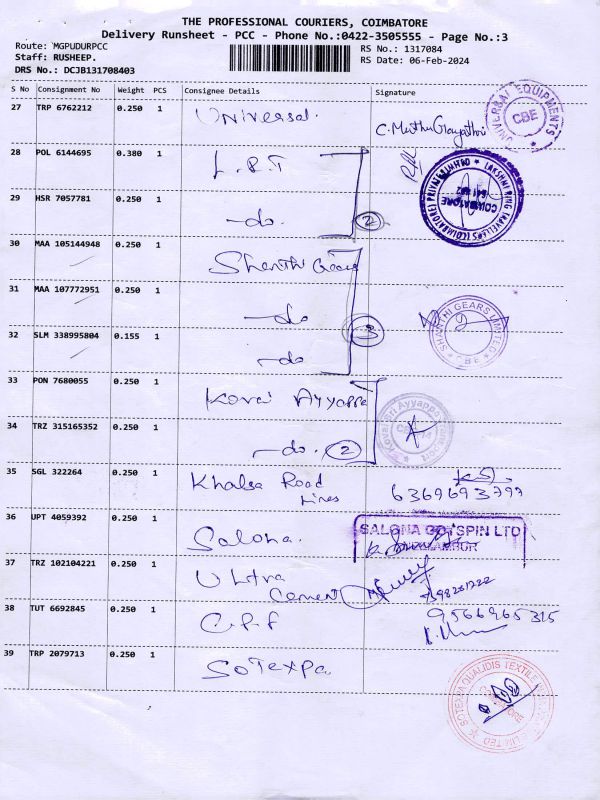 THE PROFESSIONAL COURIERS, COIMBATORE
Delivery Runsheet - PCC - Phone No.:0422-3505555 - Page No.:3
Route: MGPUDURPCC
RS No.: 1317084
Staff: RUSHEEP.
RS Date: 06-Feb-2024
DRS No.: DCJB131708403
S No Consignment No Weight PCS Consignee Details Signature
27 TRP 6762212 0.250 1 Universal. C. Muthu Gayathri
UNIVERSAL EQUIPMENTS CBE
28 POL 6144695 0.380 1 L.R.T
LAKSHMI RING TRAVELLERS (COIMBATORE) PRIVATE LIMITED
641 402
COIMBATORE
29 HSR 7057781 0.250 1 -do. 2
30 MAA 105144948 0.250 1 Shanthi Gears
31 MAA 107772951 0.250 1 -do 3
SHANTHI GEARS LIMITED CBE
32 SLM 338995804 0.155 1 -do
33 PON 7680055 0.250 1 Kovai Ayyappa
Kovai Sri Ayyappa
34 TRZ 315165352 0.250 1 -do. 2
35 SGL 322264 0.250 1 Khalsa Road
Lines 6369693799
36 UPT 4059392 0.250 1 Salona.
SALONA COTSPIN LTD
37 TRZ 102104221 0.250 1 Ultra
Cement
38 TUT 6692845 0.250 1 C.P.F 9566965315
39 TRP 2079713 0.250 1 SOTEXPA
SOTEXPA QUALIDIS TEXTILE
COIMBATORE